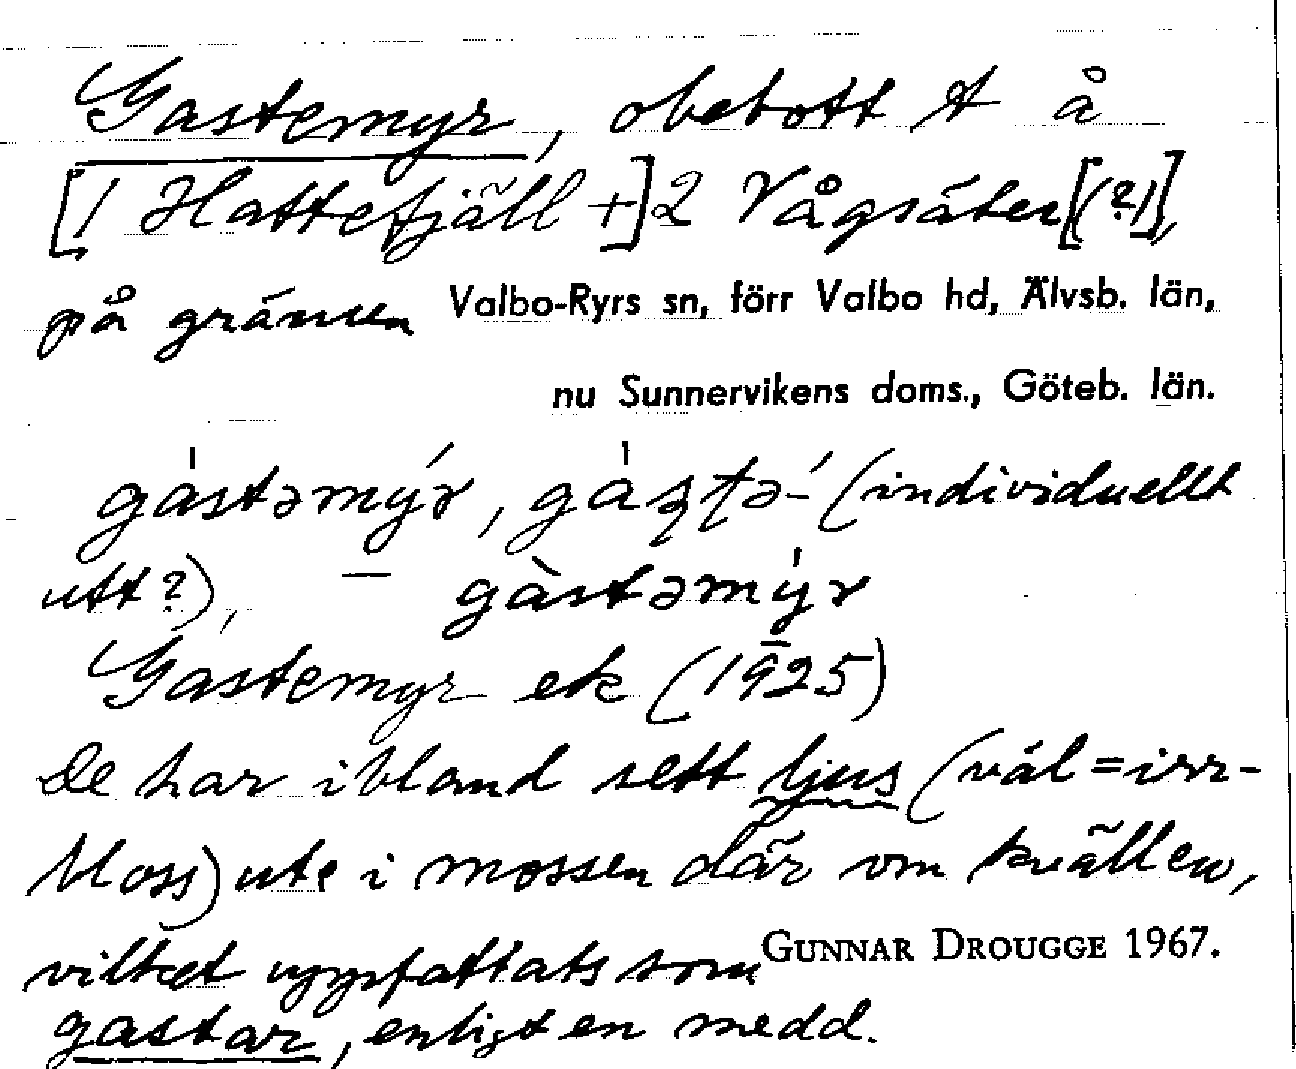 Gastemyr, obebott t å
[1 Hattefjäll +] 2 Vågsäter [(?)],
på gränsen Valbo-Ryrs sn, förr Valbo hd, Älvsb. län,
nu Sunnervikens doms., Göteb. län.
gàstəmýr, gàʂʈə-́ (individuellt
utt?), — gàstəmýr
Gastemyr ek (1925)
De har ibland sett ljus (väl = irr-
bloss) ute i mossen där om kvällen,
vilket uppfattats som GUNNAR DROUGGE 1967.
gastar, enligt en medd.